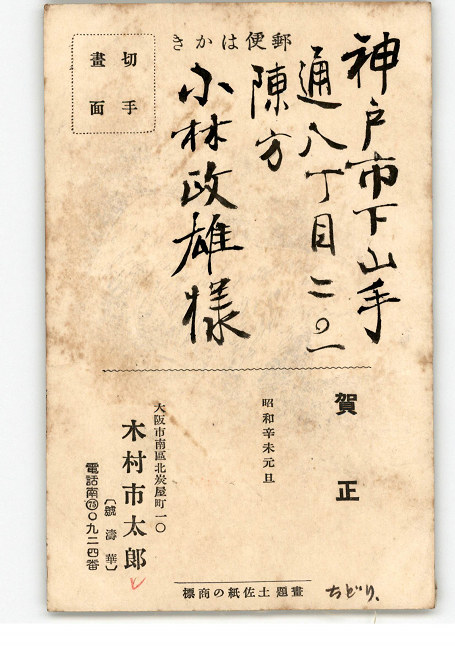 郵便はかき
切手
畫面
神戸市下山手
通八丁目二〇一
陳方
小林政雄様
賀正
昭和辛未元旦
大阪市南區北炭屋町一〇
木村市太郎
〔號濤華〕
電話南㊆〇九二四番
畫題土佐紙の商標
ちどり、